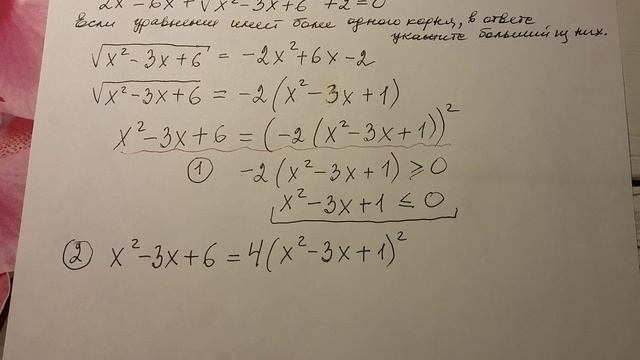 2x² - 6x + √x² - 3x + 6 + 2 = 0
Если уравнение имеет более одного корня, в ответе
укажите больший из них.
√x² - 3x + 6 = -2x² + 6x - 2
√x² - 3x + 6 = -2(x² - 3x + 1)
x² - 3x + 6 = (-2(x² - 3x + 1))²
① -2(x² - 3x + 1) ⩾ 0
x² - 3x + 1 ≤ 0
② x² - 3x + 6 = 4(x² - 3x + 1)²